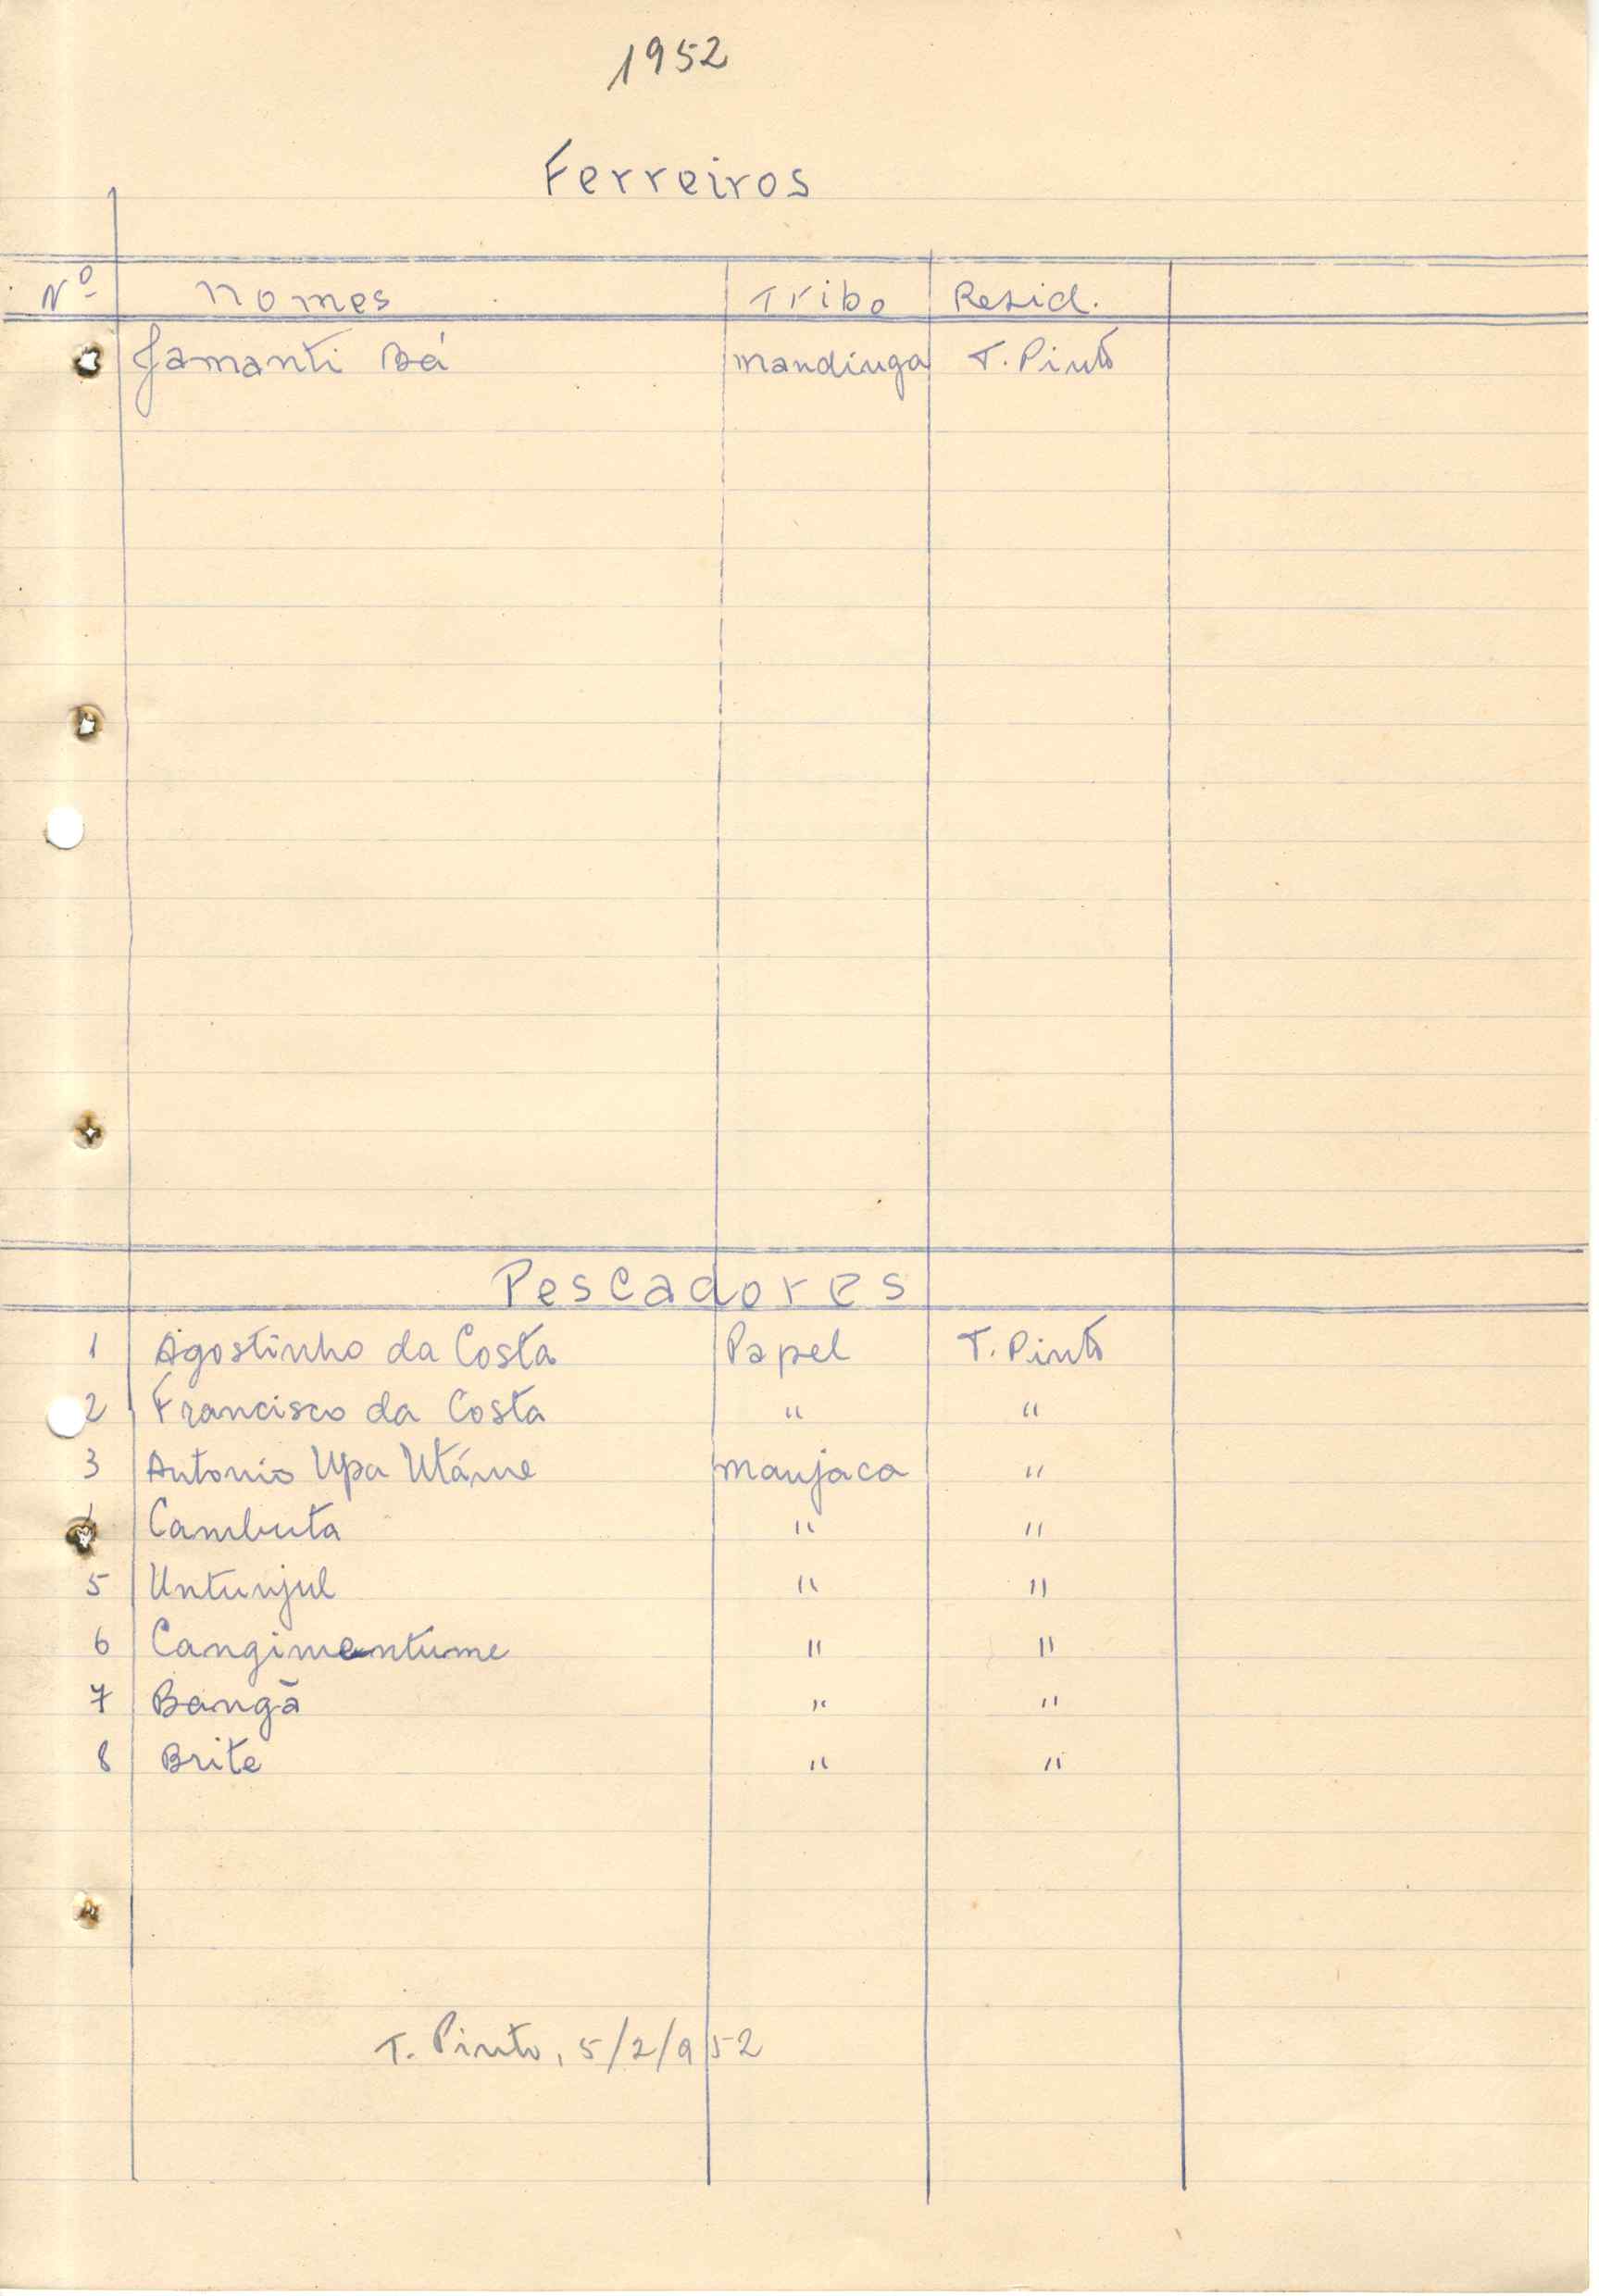 1952
Ferreiros
Nº Nomes Tribo Resid.
Jamanti Bá Mandinga T. Pinto
Pescadores
1 Agostinho da Costa Papel T. Pinto
2 Francisco da Costa " "
3 Antonio Upa Utáme Manjaca "
Cambuta " "
5 Untunjul " "
6 Cangimentume " "
7 Bangã " "
8 Brite " "
T. Pinto, 5/2/952